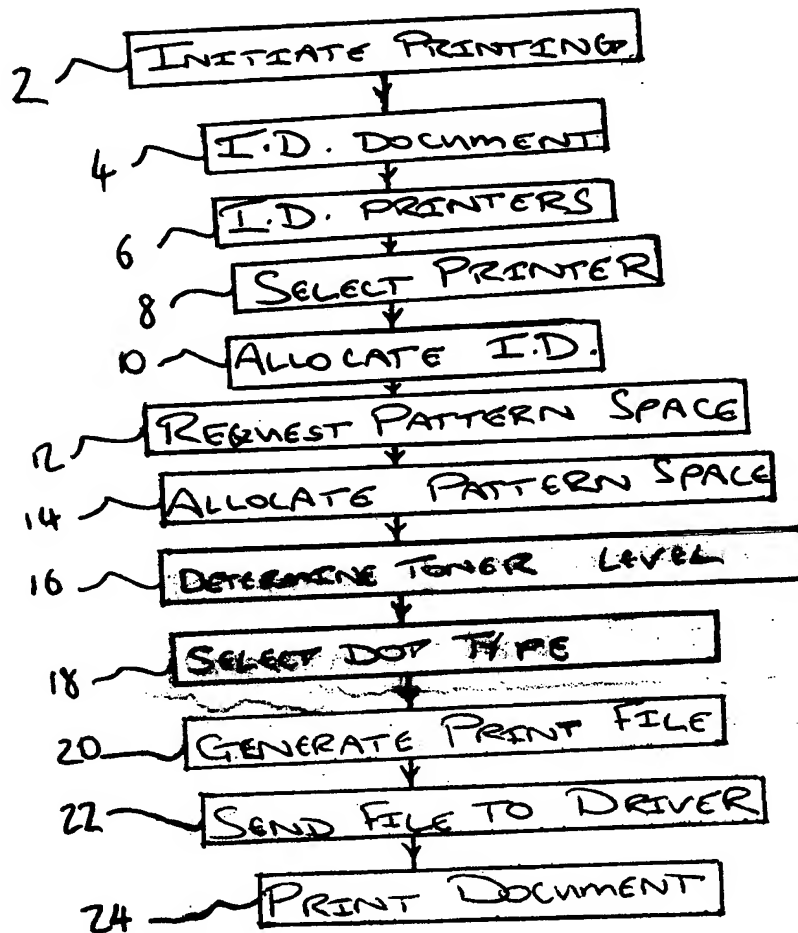 2 INITIATE PRINTING
4 I.D. DOCUMENT
6 I.D. PRINTERS
8 SELECT PRINTER
10 ALLOCATE I.D.
12 REQUEST PATTERN SPACE
14 ALLOCATE PATTERN SPACE
16 DETERMINE TONER LEVEL
18 SELECT DOT TYPE
20 GENERATE PRINT FILE
22 SEND FILE TO DRIVER
24 PRINT DOCUMENT